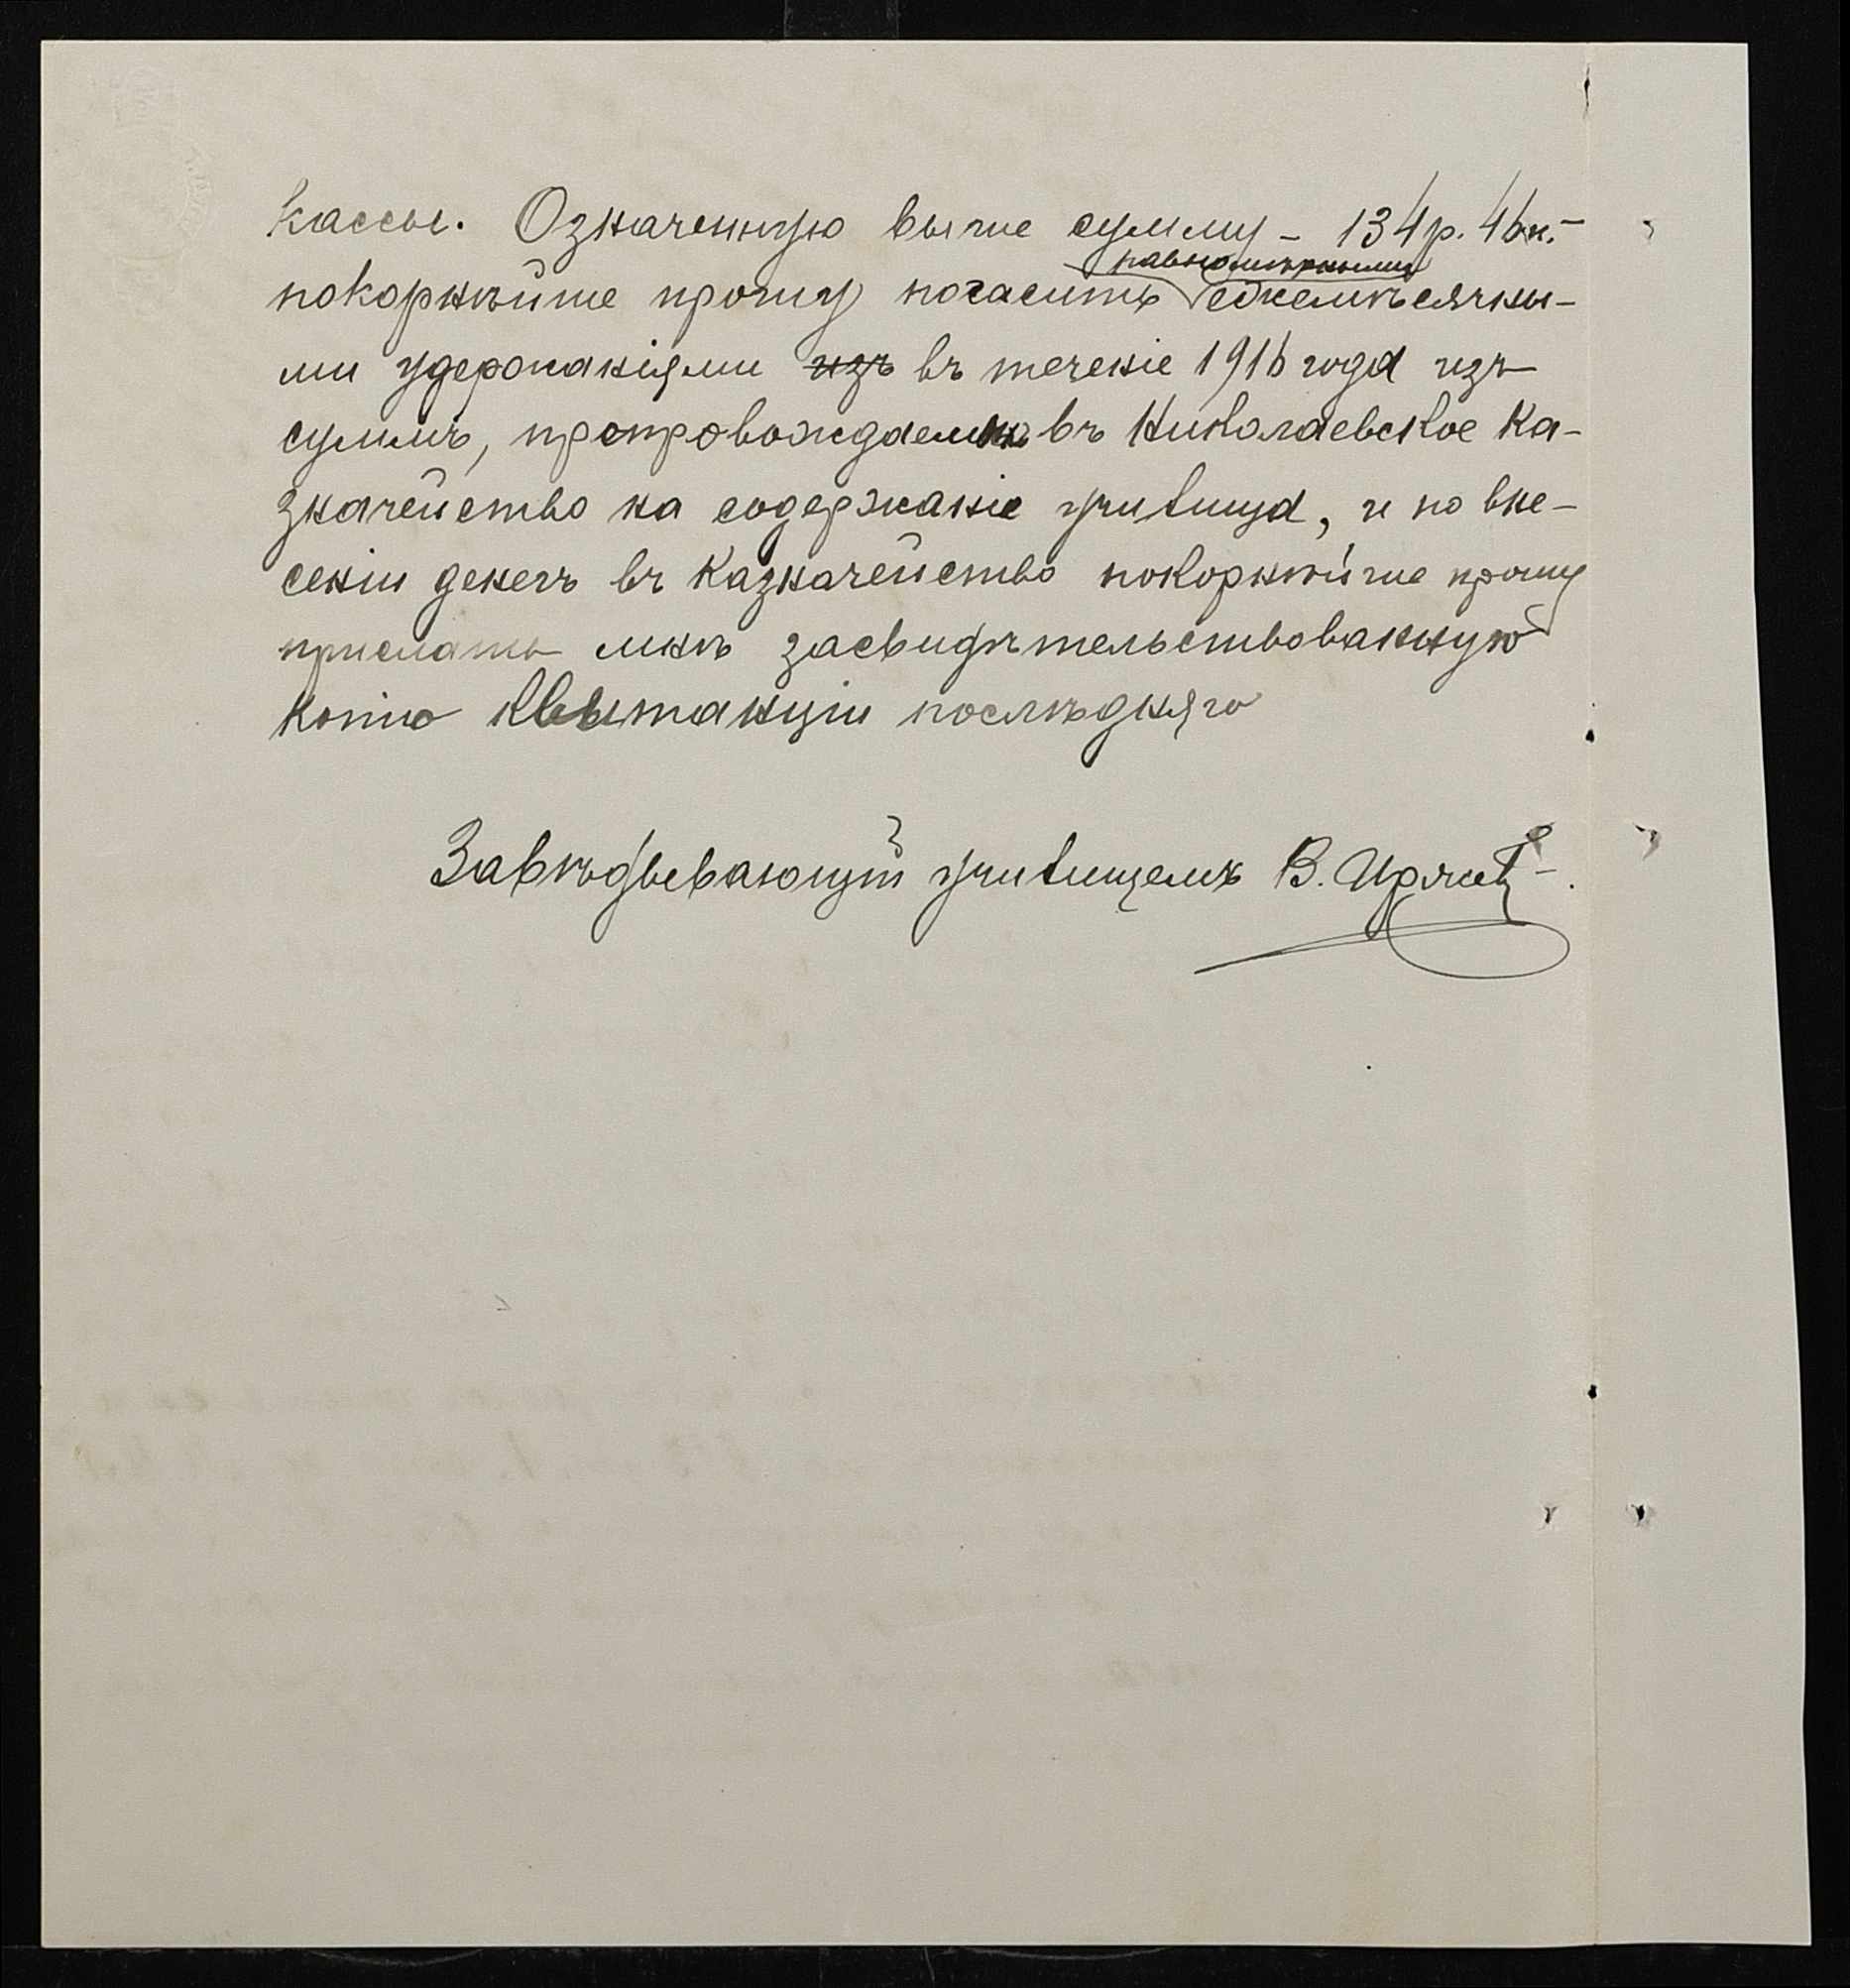 кассы. Означенную выше сумму – 134 р. 46 к. –
покорнѣйше прошу погасить равномѣрными ежемѣсячны-
ми удержаніями изъ въ теченіе 1916 года изъ
суммъ, препровождаемыхъ въ Николаевское Ка-
значейство на содержаніе училища, и по вне-
сеніи денегъ въ Казначейство покорнѣйше прошу
прислать мнѣ засвидѣтельствованную
копію квитанціи послѣдняго
Завѣдывающій училищемъ В.